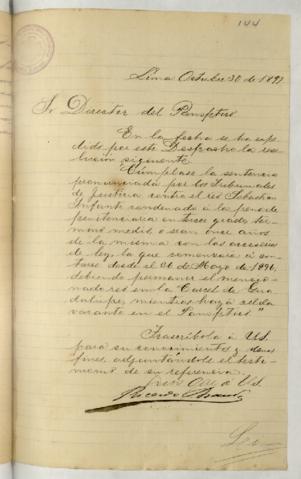 144
Lima Octubre 30 de 1897
Sr. Director del Panóptico.
En la fecha se ha expe-
dido por este Despacho la reso-
lución siguiente
"Cúmplase la sentencia
pronunciada por los Tribunales
de justicia contra el reo Sebastian
Infante condenado á la pena de
penitenciaria en tercer grado, tér-
mino medio, o sean once años
de la misma con las accesorias
de ley, la que comenzará á con-
tarse desde el 21 de Mayo de 1896,
debiendo permanecer el mencio-
nado reo en la Carcel de Gua-
dalupe, mientras haya celda
vacante en el Panóptico."
Trascríbola á US.
para su conocimiento y demas
fines, adjuntándole el testi-
monio de su referencia.
Dios Gue. á US.
Ricardo